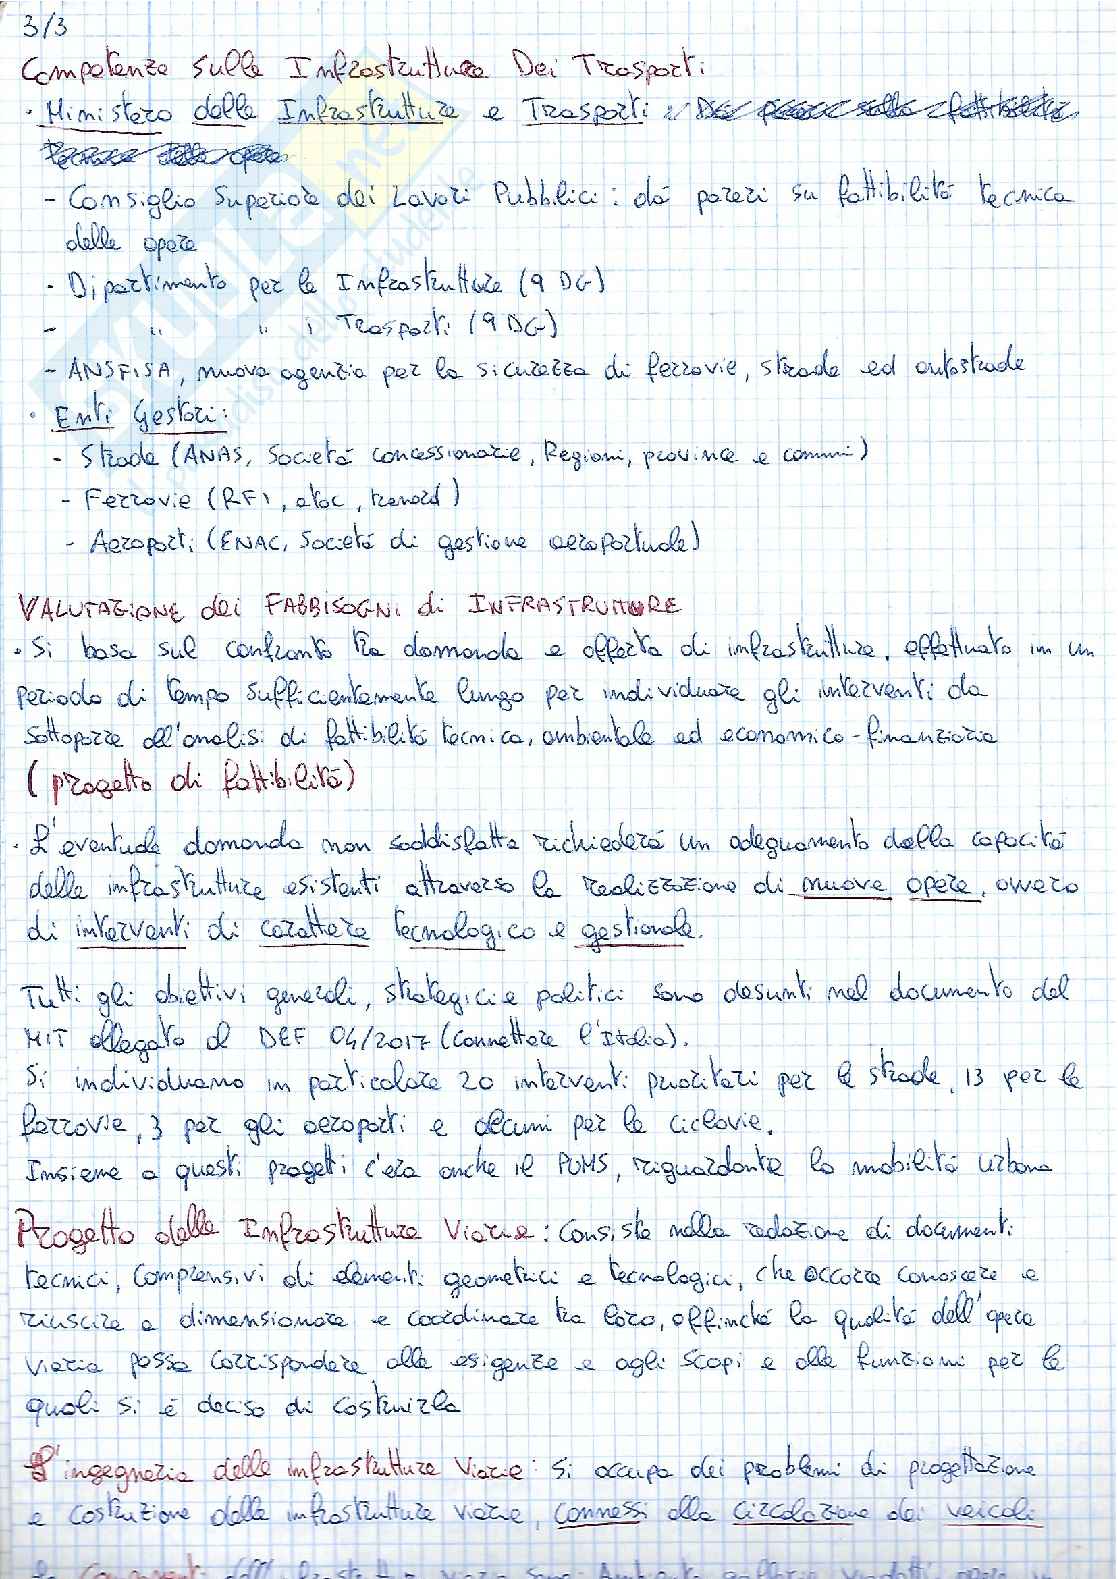 3/3
Competenze sulle Infrastrutture Dei Trasporti
· Ministero delle Infrastrutture e Trasporti
- Consiglio Superiore dei Lavori Pubblici: dà pareri su fattibilità tecnica
delle opere
- Dipartimento per le Infrastrutture (9 DG)
- " " i Trasporti (9 DG)
- ANSFISA, nuova agenzia per la sicurezza di ferrovie, strade ed autostrade
· Enti Gestori:
- Strade (ANAS, Società concessionarie, Regioni, province e comuni)
- Ferrovie (RFI, atac, trenord)
- Aeroporti (ENAC, Società di gestione aeroportuale)
VALUTAZIONE dei FABBISOGNI di INFRASTRUTTURE
· Si basa sul confronto tra domanda e offerta di infrastrutture, effettuato in un
periodo di tempo sufficientemente lungo per individuare gli interventi da
sottoporre all'analisi di fattibilità tecnica, ambientale ed economico-finanziaria
(progetto di fattibilità)
· L'eventuale domanda non soddisfatta richiederà un adeguamento della capacità
delle infrastrutture esistenti attraverso la realizzazione di nuove opere, ovvero
di interventi di carattere tecnologico e gestionale.
Tutti gli obiettivi generali, strategici e politici sono desunti nel documento del
MIT allegato al DEF 04/2017 (Connettere l'Italia).
Si individuano in particolare 20 interventi prioritari per le strade, 13 per le
ferrovie, 3 per gli aeroporti e alcuni per le ciclovie.
Insieme a questi progetti c'era anche il PUMS, riguardante la mobilità urbana
Progetto delle Infrastrutture Viarie: Consiste nella redazione di documenti
tecnici, comprensivi di elementi geometrici e tecnologici, che occorre conoscere e
riuscire a dimensionare e coordinare tra loro, affinché la qualità dell'opera
viaria possa corrispondere alle esigenze e agli scopi e alle funzioni per le
quali si è deciso di costruirla
L'ingegneria delle infrastrutture Viarie: si occupa dei problemi di progettazione
e costruzione delle infrastrutture viarie, connessi alla circolazione dei veicoli